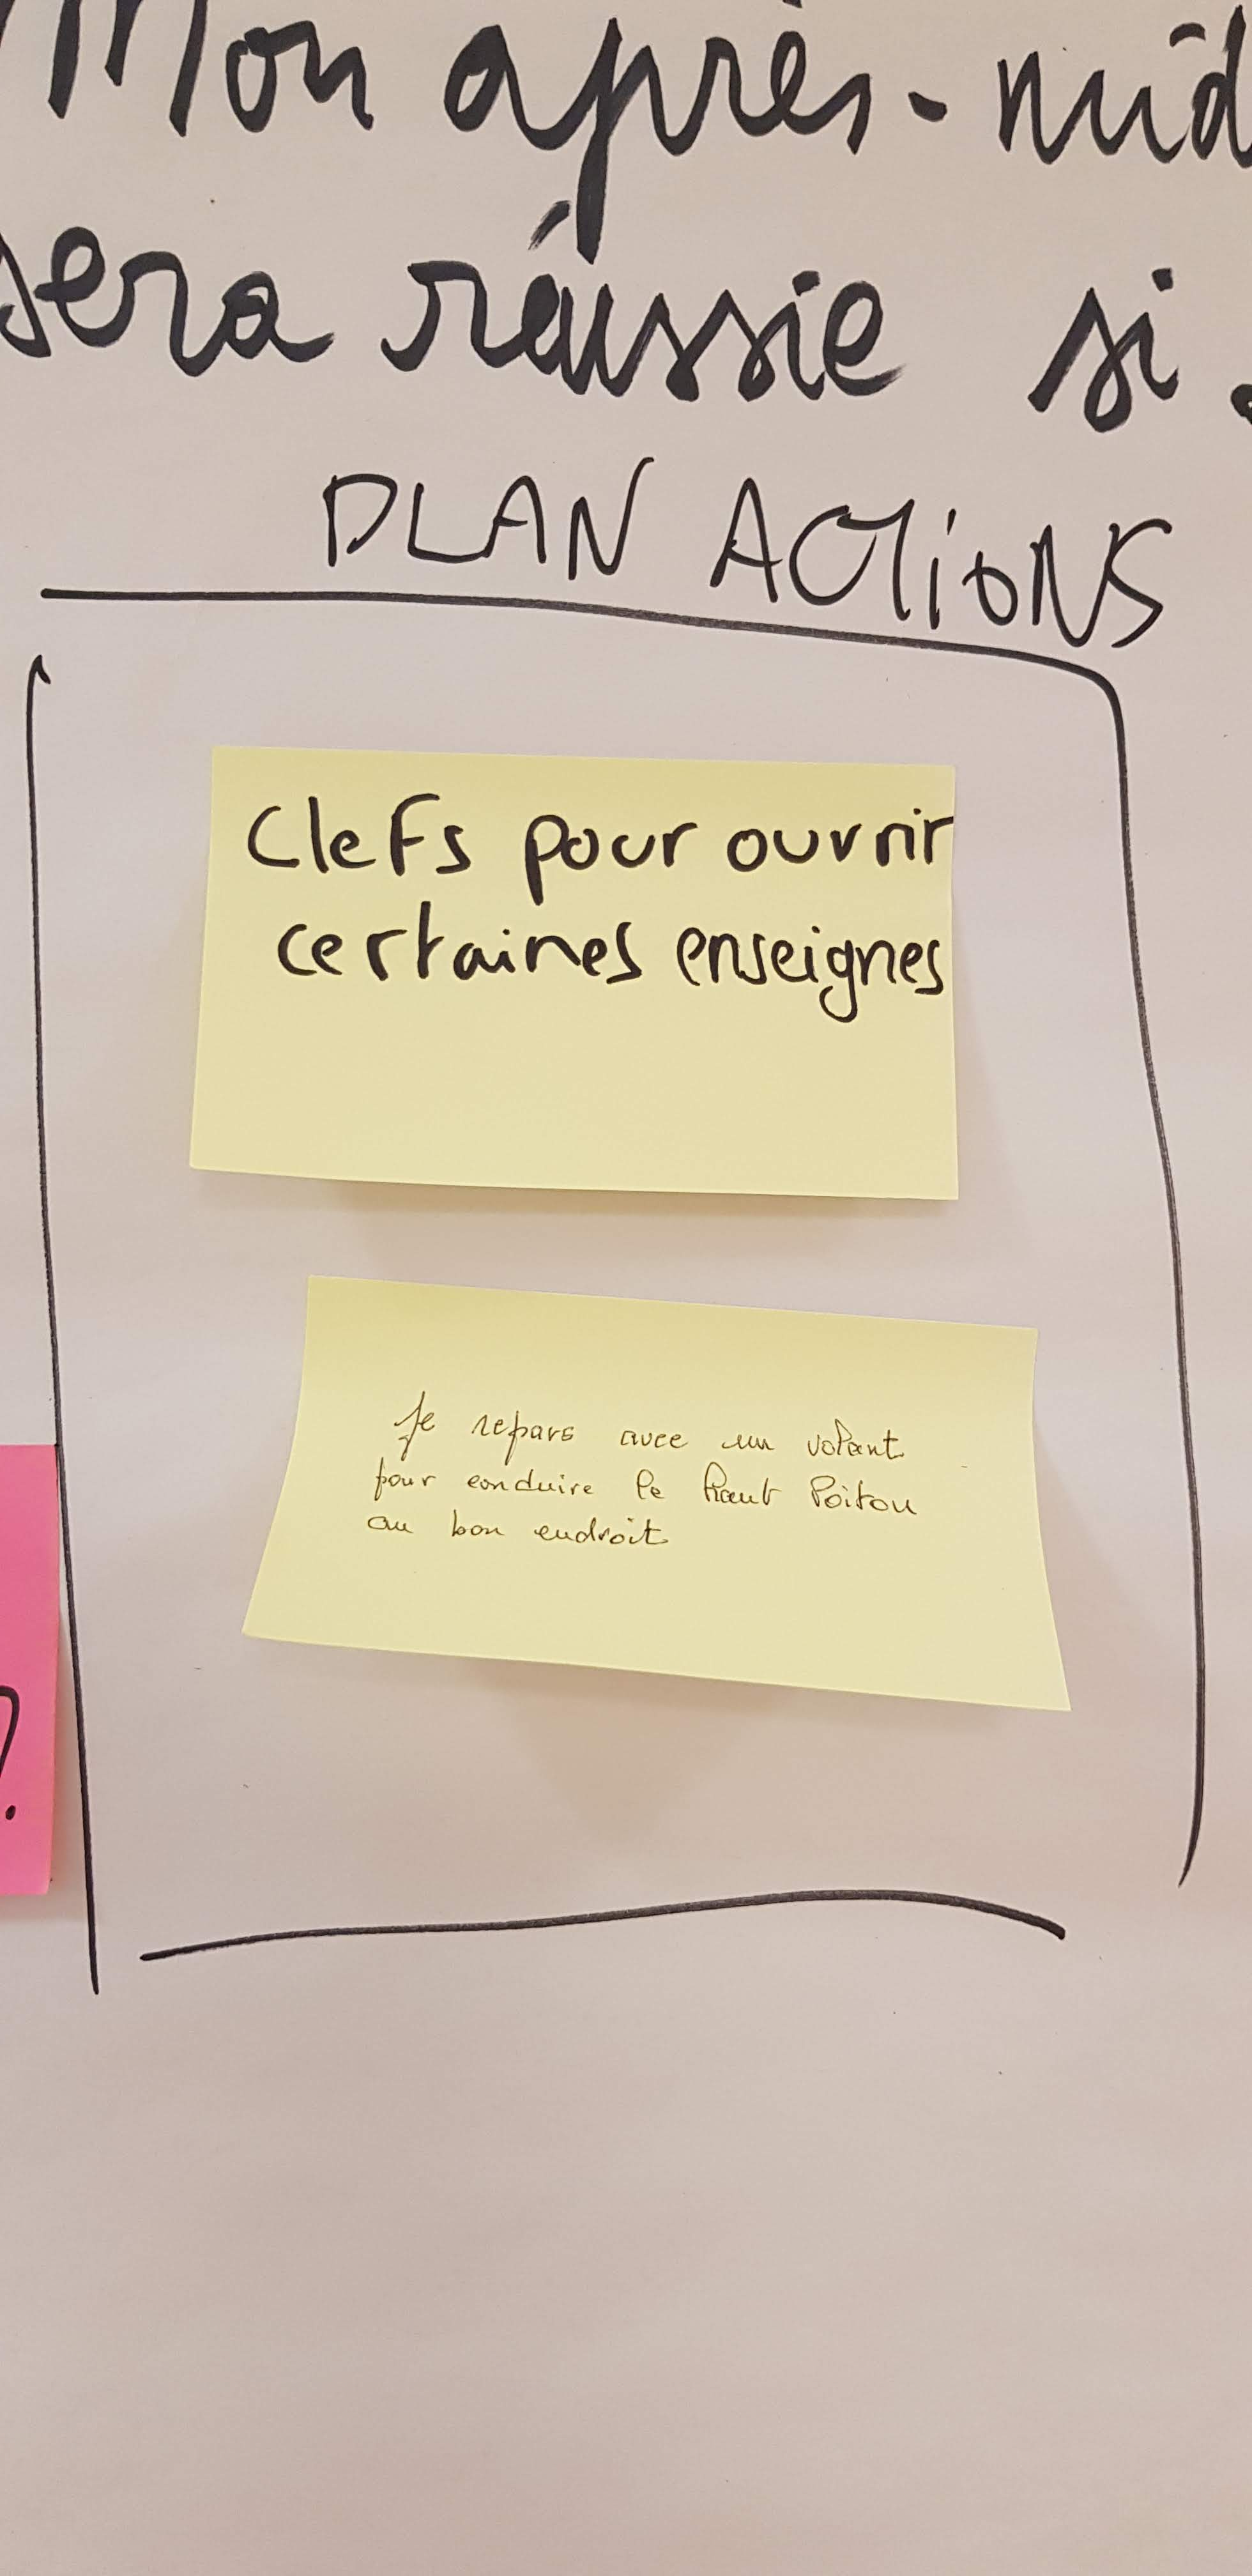 Mon après-mid
sera réussie si .
PLAN ACTIONS
Clefs pour ouvrir
certaines enseignes
Je repars avec un volant
pour conduire le haut Poitou
au bon endroit
?